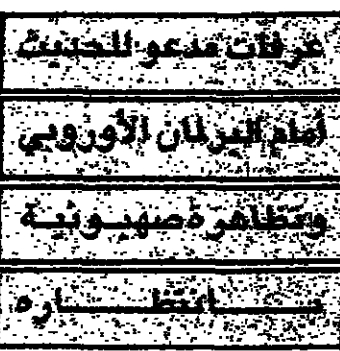 عرفات مدعو للحديث
أمام البرلمان الأوروبي
وتظاهرة صهيونية
بانتظاره